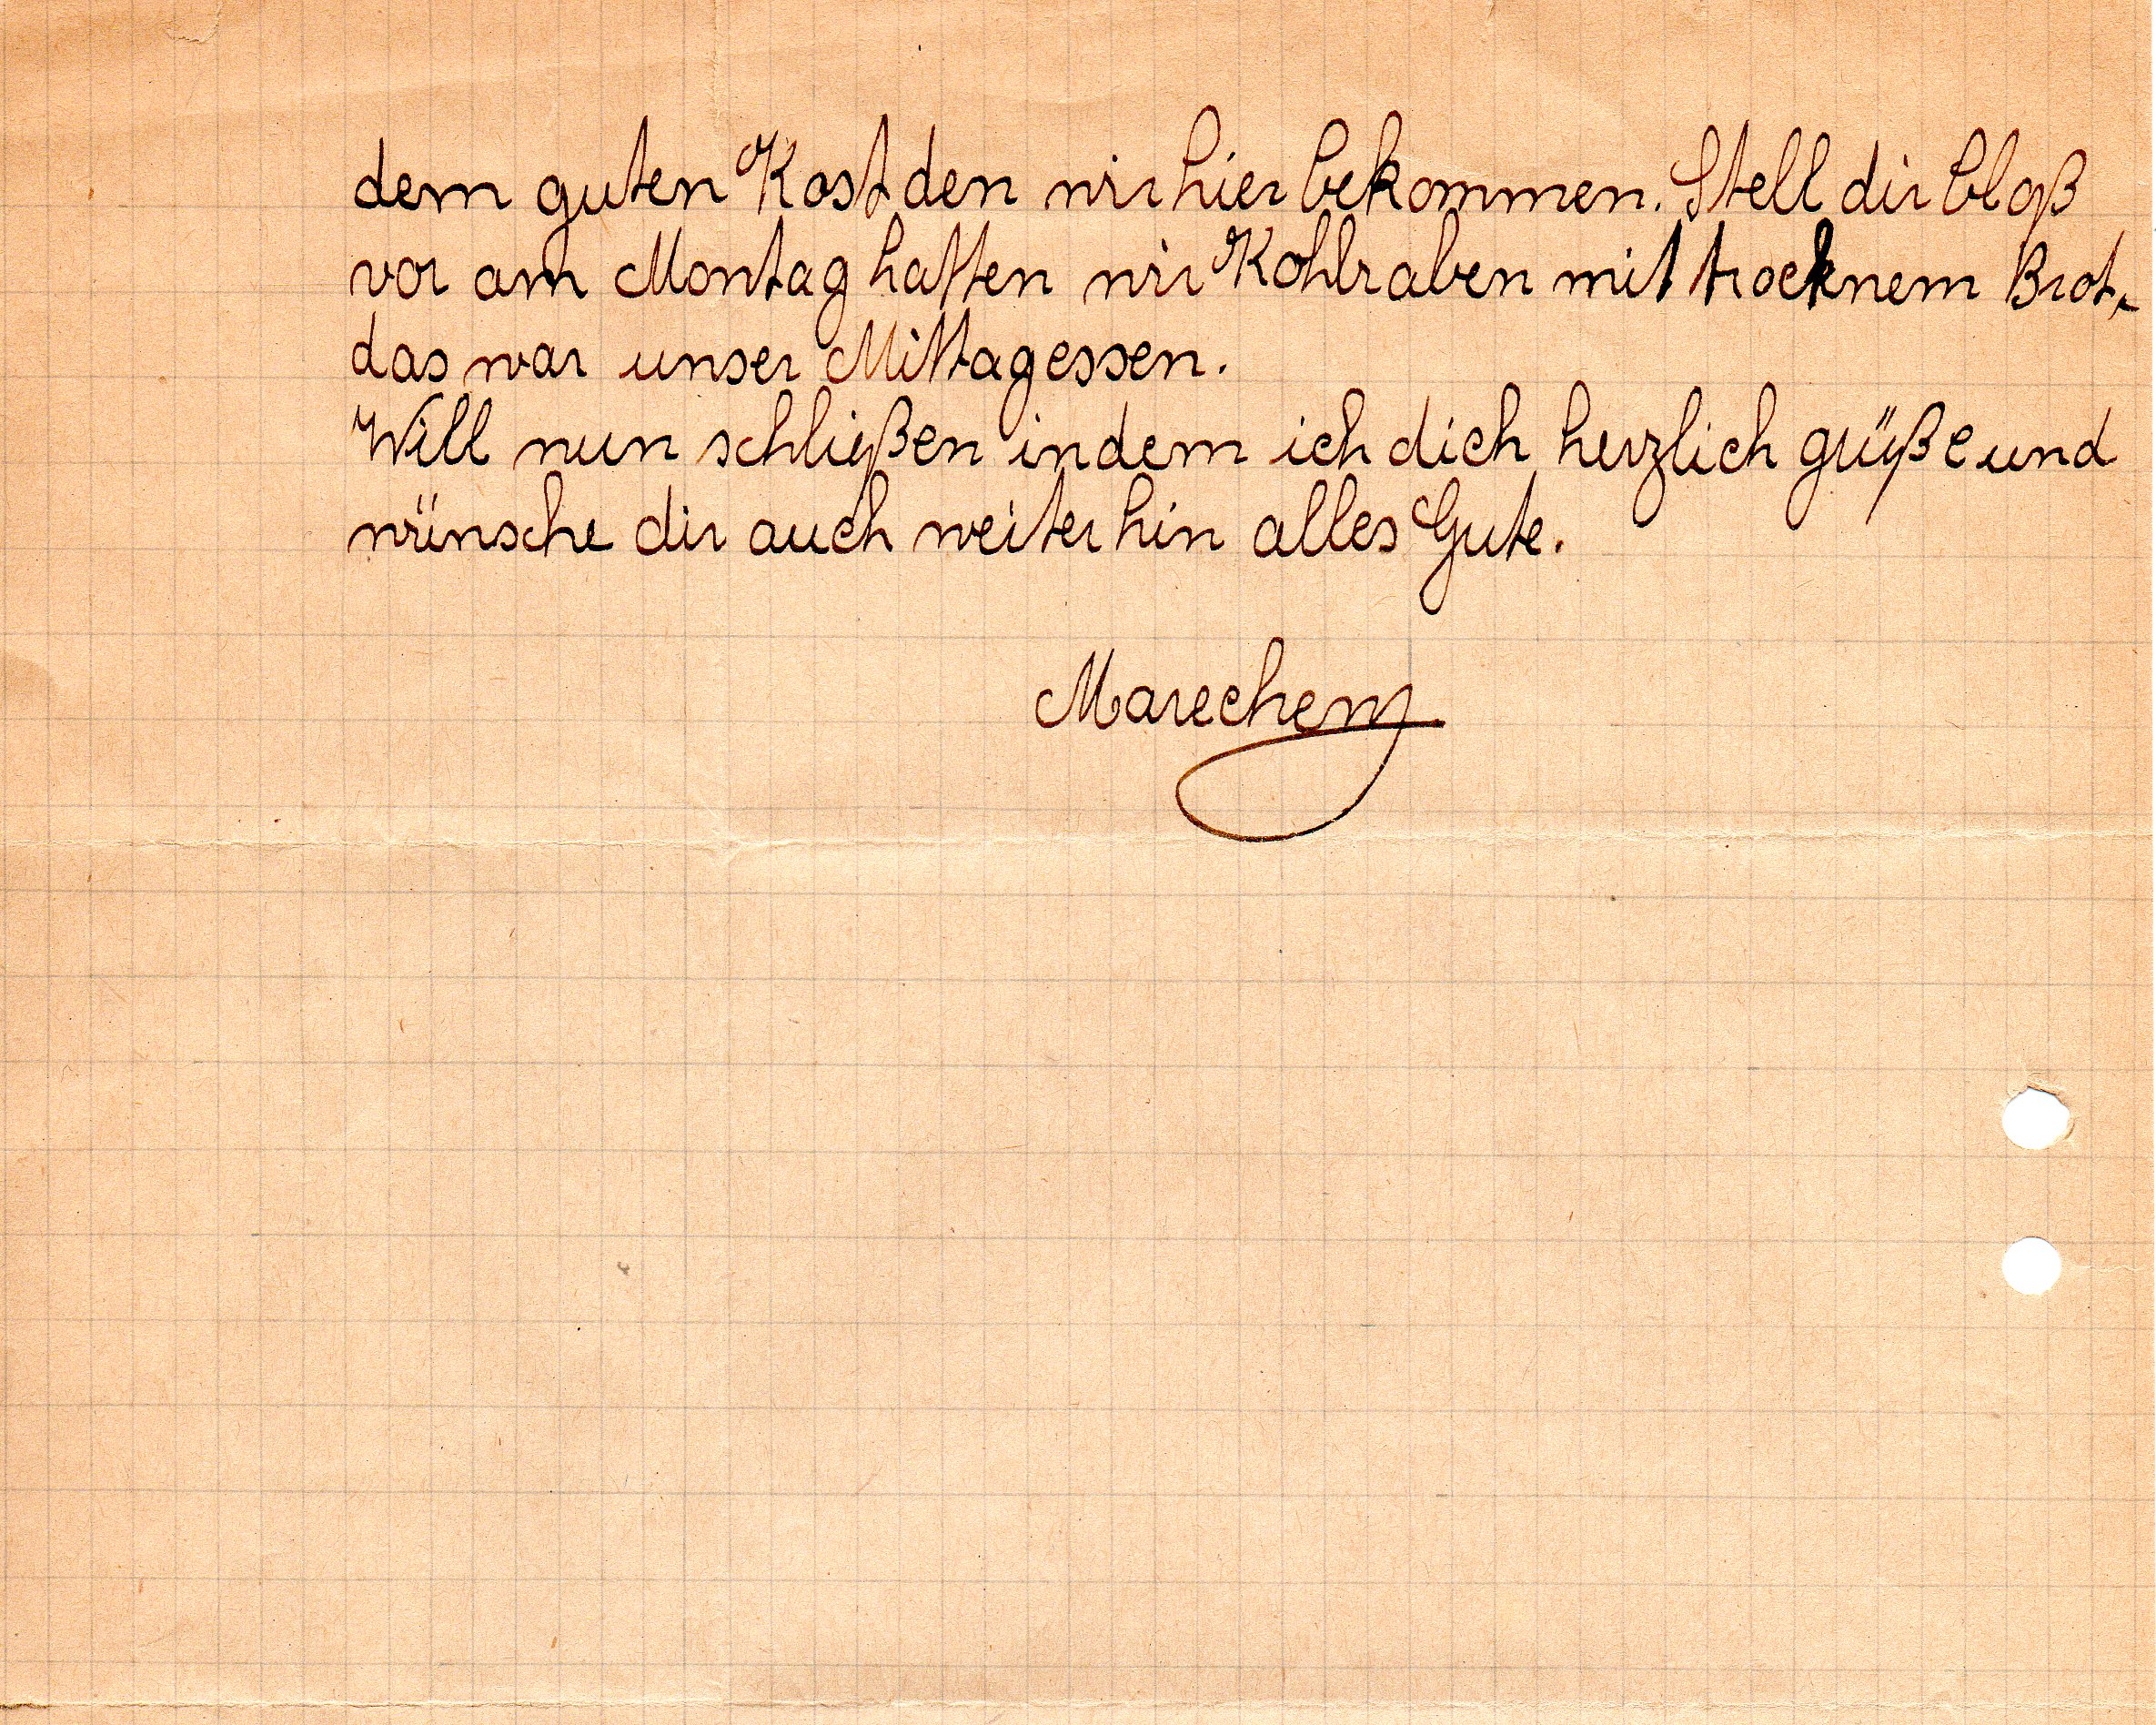 dem guten Kost den wir hier bekommen. Stell dir bloß
vor am Montag hatten wir Kohlraben mit trocknem Brot,
das war unser Mittagessen.
Will nun schließen indem ich dich herzlich grüße und
wünsche dir auch weiterhin alles Gute.
Marechen